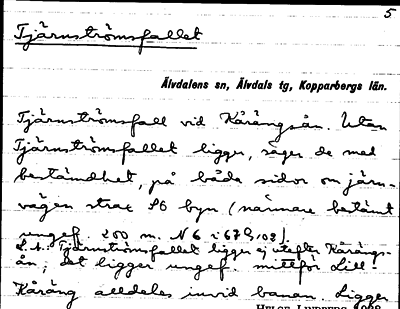 5
Tjärnströmsfallet
Älvdalens sn, Älvdals tg, Kopparbergs län.
Tjärnströmsfall vid Kårängsån. Utan
Tjärnströmsfallet ligger, säger de med
bestämdhet, på båda sidor om järn-
vägen strax SÖ byn (närmare bestämt
ungef. 200 m. N 6
L.A. Tjärnströmsfallet ligger ej utefter Kårängs-
ån; det ligger ungef. mittför Lill-
Kåräng alldeles invid banan. Ligger
HELGE LINDBERG 1928